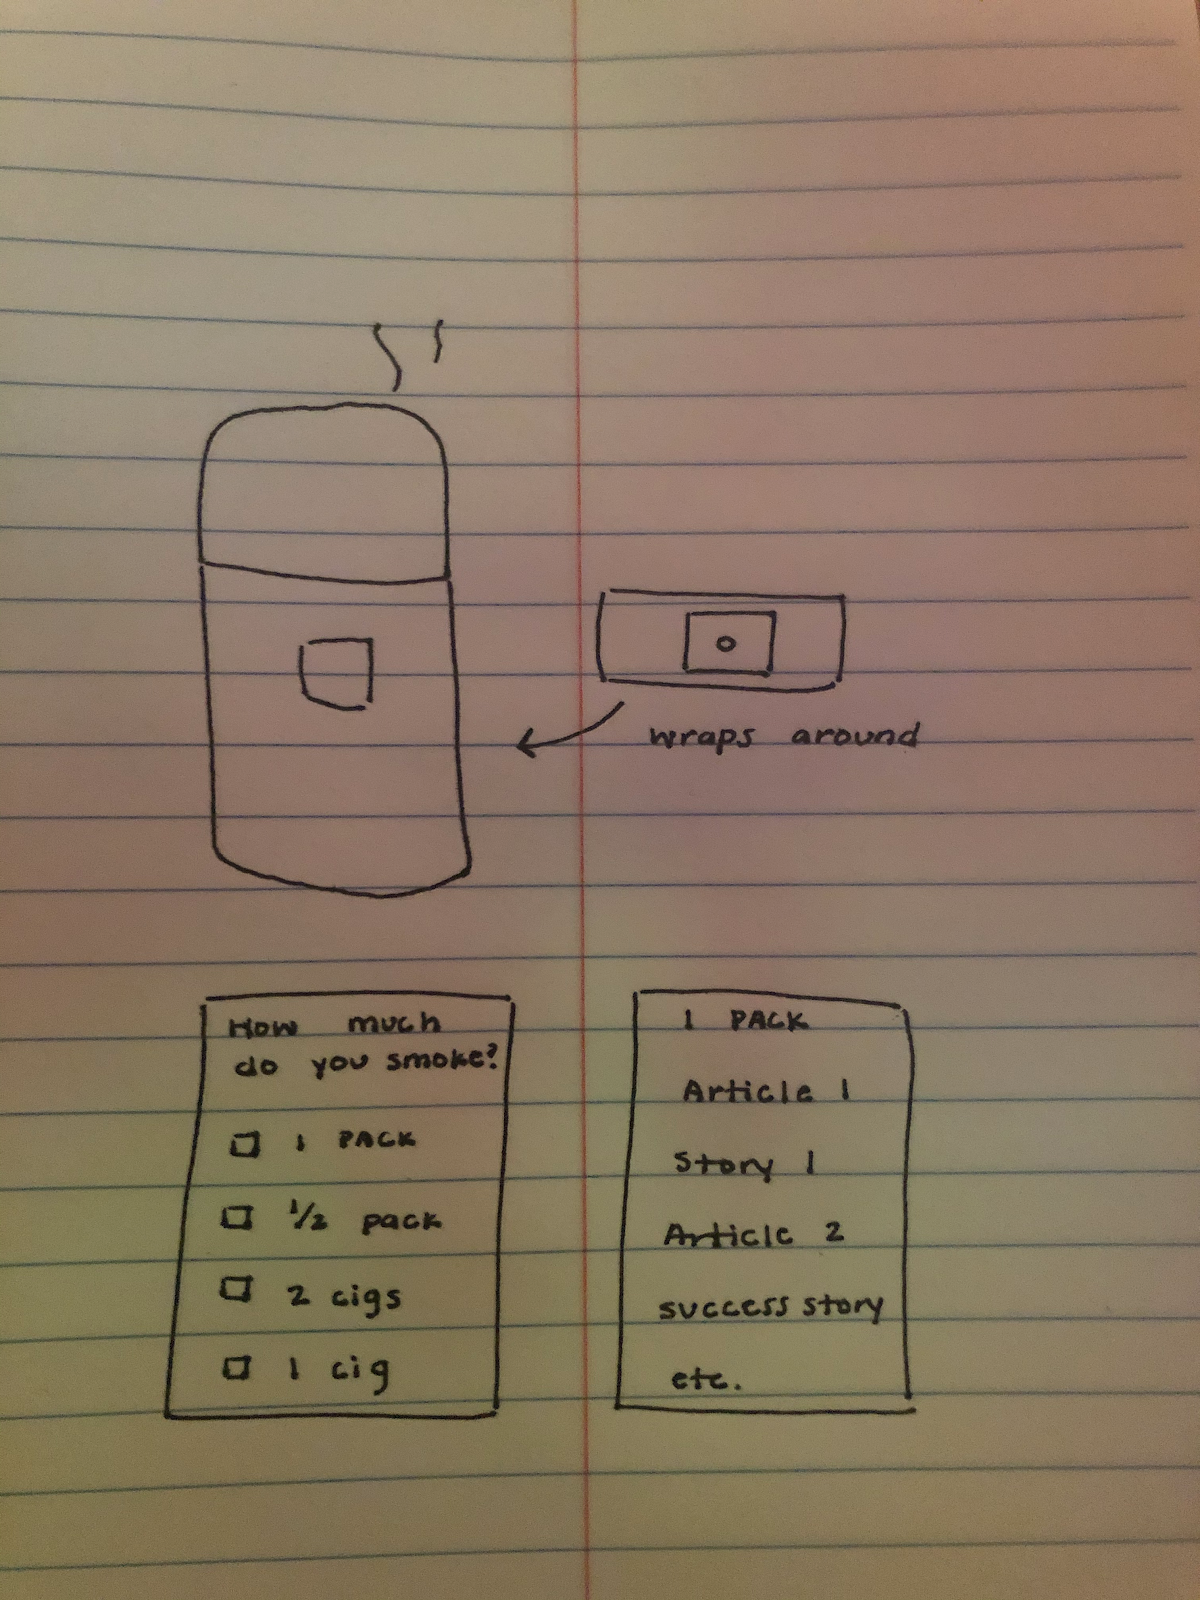 wraps around
How much
do you smoke?
1 PACK
1/2 pack
2 cigs
1 cig
1 PACK
Article 1
Story 1
Article 2
success story
etc.